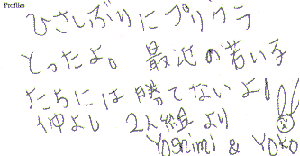 Profile
ひさしぶりにプリクラ
とったよ。最近の若い子
たちには勝てないよ!!
仲よし 2人組より
Yoshimi & Yoko